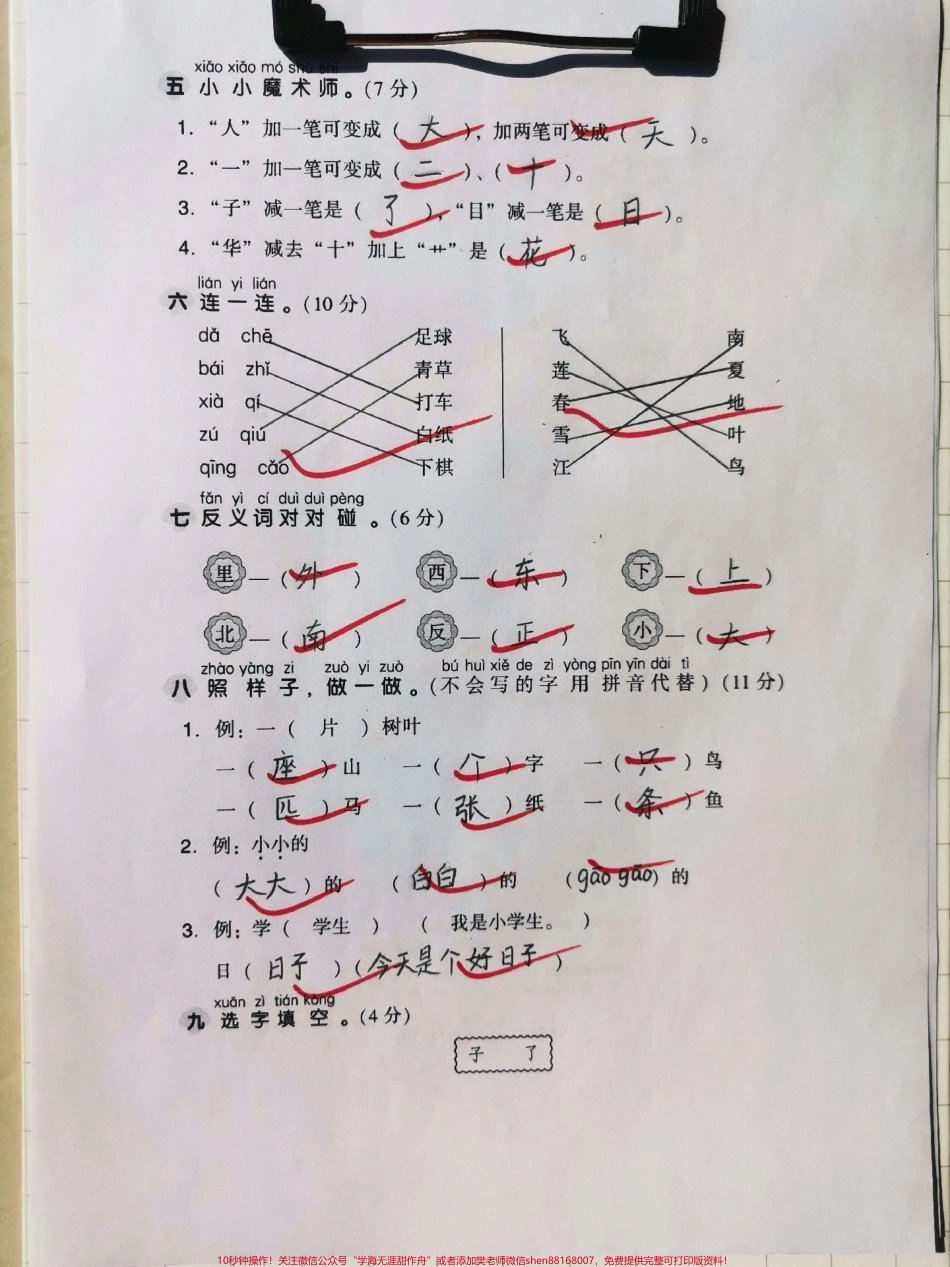 xiǎo xiǎo mó shù shī
五 小小魔术师。(7分)
1. “人”加一笔可变成( 大 ), 加两笔可变成( 天 )。
2. “一”加一笔可变成( 二 )、( 十 )。
3. “子”减一笔是( 了 ), “目”减一笔是( 日 )。
4. “华”减去“十”加上“艹”是( 花 )。
lián yi lián
六 连一连。(10分)
dǎ chē 足球 飞 南
bái zhǐ 青草 莲 夏
xià qí 打车 春 地
zú qiú 白纸 雪 叶
qīng cǎo 下棋 江 鸟
fǎn yì cí duì duì pèng
七 反义词对对碰。(6分)
里—( 外 ) 西—( 东 ) 下—( 上 )
北—( 南 ) 反—( 正 ) 小—( 大 )
zhào yàng zi zuò yi zuò bú huì xiě de zì yòng pīn yīn dài tì
八 照样子,做一做。(不会写的字用拼音代替)(11分)
1. 例:一( 片 )树叶
一( 座 )山 一( 个 )字 一( 只 )鸟
一( 匹 )马 一( 张 )纸 一( 条 )鱼
2. 例:小小的
( 大大 )的 ( 白白 )的 (gāo gāo)的
3. 例:学( 学生 ) ( 我是小学生。 )
日( 日子 )(今天是个好日子 )
xuǎn zì tián kòng
九 选字填空。(4分)
子 了
10秒钟操作!关注微信公众号“学海无涯甜作舟”或者添加樊老师微信shen88168007,免费提供完整可打印版资料!